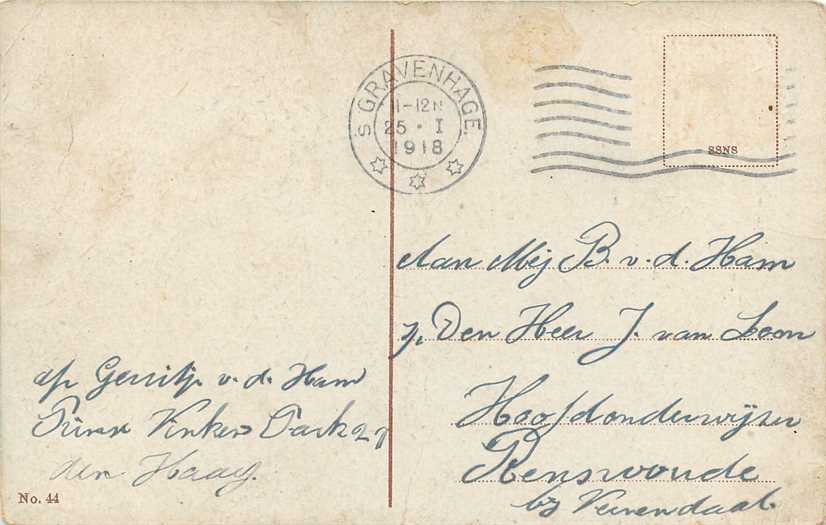 'S GRAVENHAGE.
11-12 N
25 · I
1918
SSNS
Aan Mej B. v. d. Ham
p/ Den Heer J. van Loon
Hoofdonderwijzer
Renswoude
bij Veenendaal
afz Gerritje v. d. Ham
Vinken Park 29
den Haag.
No. 44